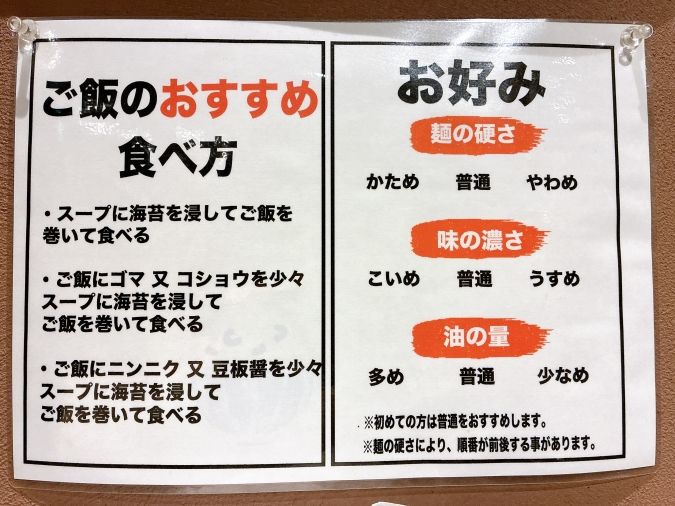 ご飯のおすすめ
食べ方
・スープに海苔を浸してご飯を
巻いて食べる
・ご飯にゴマ 又 コショウを少々
スープに海苔を浸して
ご飯を巻いて食べる
・ご飯にニンニク 又 豆板醤を少々
スープに海苔を浸して
ご飯を巻いて食べる
お好み
麺の硬さ
かため 普通 やわめ
味の濃さ
こいめ 普通 うすめ
油の量
多め 普通 少なめ
※初めての方は普通をおすすめします。
※麺の硬さにより、順番が前後する事があります。